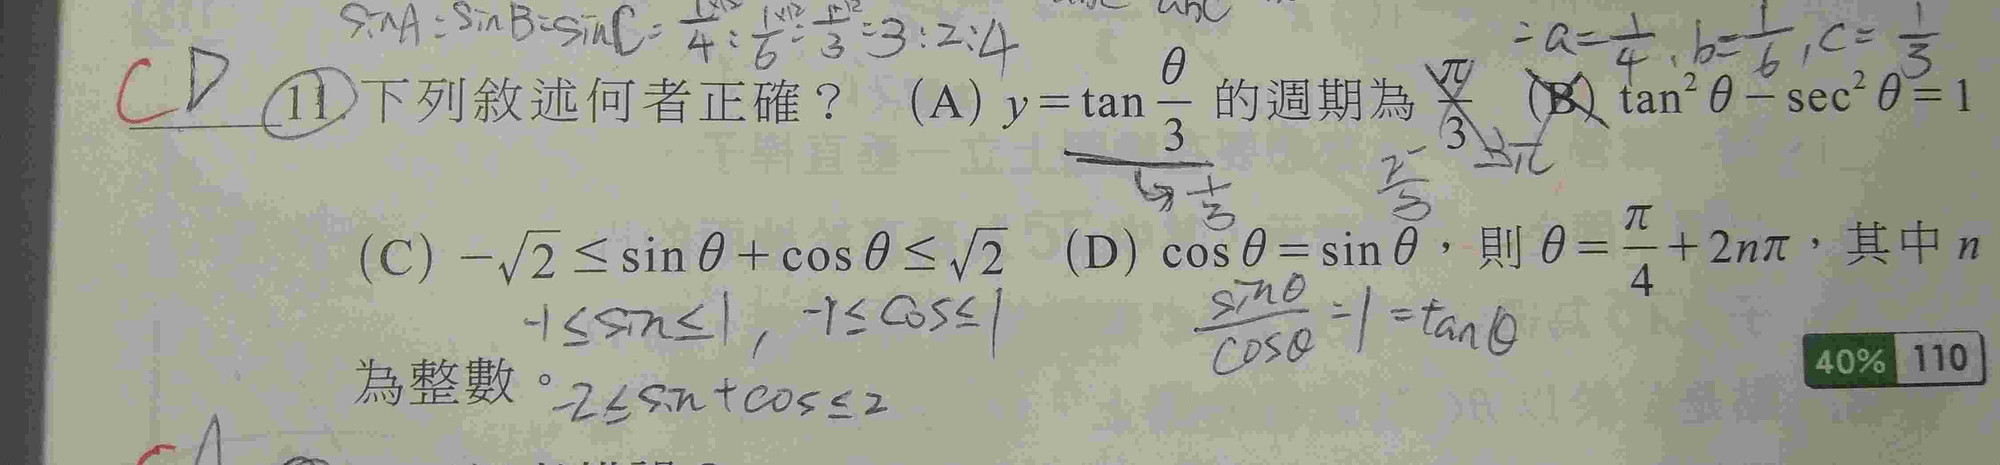 sinA:sinB:sinC=1×12/4:1×12/6:1×12/3=3:2:4
∴a=1/4,b=1/6,c=1/3
CD 11 下列敘述何者正確? (A) y=tan θ/3 的週期為 π/3 (B) tan² θ−sec² θ=1
3π
↳ 1/3
(C) −√2 ≤ sin θ + cos θ ≤ √2 (D) cos θ = sin θ,則 θ = π/4 + 2nπ,其中 n
-1≤sin≤1, -1≤cos≤1 sinθ/cosθ=1=tanθ
為整數。 -2≤sin+cos≤2
40% 110